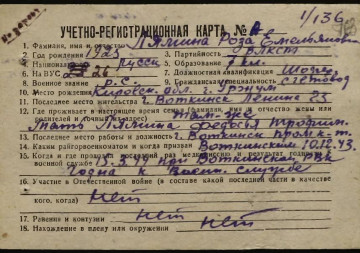 1/136
УЧЕТНО-РЕГИСТРАЦИОННАЯ КАРТА №
1. Фамилия, имя и отчество Лялина Роза Емельяновна
2. Год рождения 1925 3. Партийность ВЛКСМ
4. Национальность русск 5. Образование 7 кл.
6. На ВУС 26 7. Должностная квалификация
8. Военное звание р.с. 9. Гражданская специальность счетовод
10. Место рождения Кировск. обл. г. Уржум
11. Последнее место жительства г. Воткинск Ленина 23
12. Где проживает в настоящее время семья. Фамилия, имя и отчество жены или
родителей и точный адрес там-же
мать Лялина Федосья Трофим.
13. Последнее место работы и должность г. Воткинск пром к-т.
14. Каким райгорвоенкоматом и когда призван Воткинским 10.12.43.
15. Когда и где проходил последний раз медицинское и результат годности
военной службе 15.3.44 при Воткинском РВК
годна к воен. службе
16. Участие в Отечественной войне (в составе какой последней части и в качестве
кого, когда) нет
17. Ранения и контузии нет
18. Нахождение в плену или окружении нет